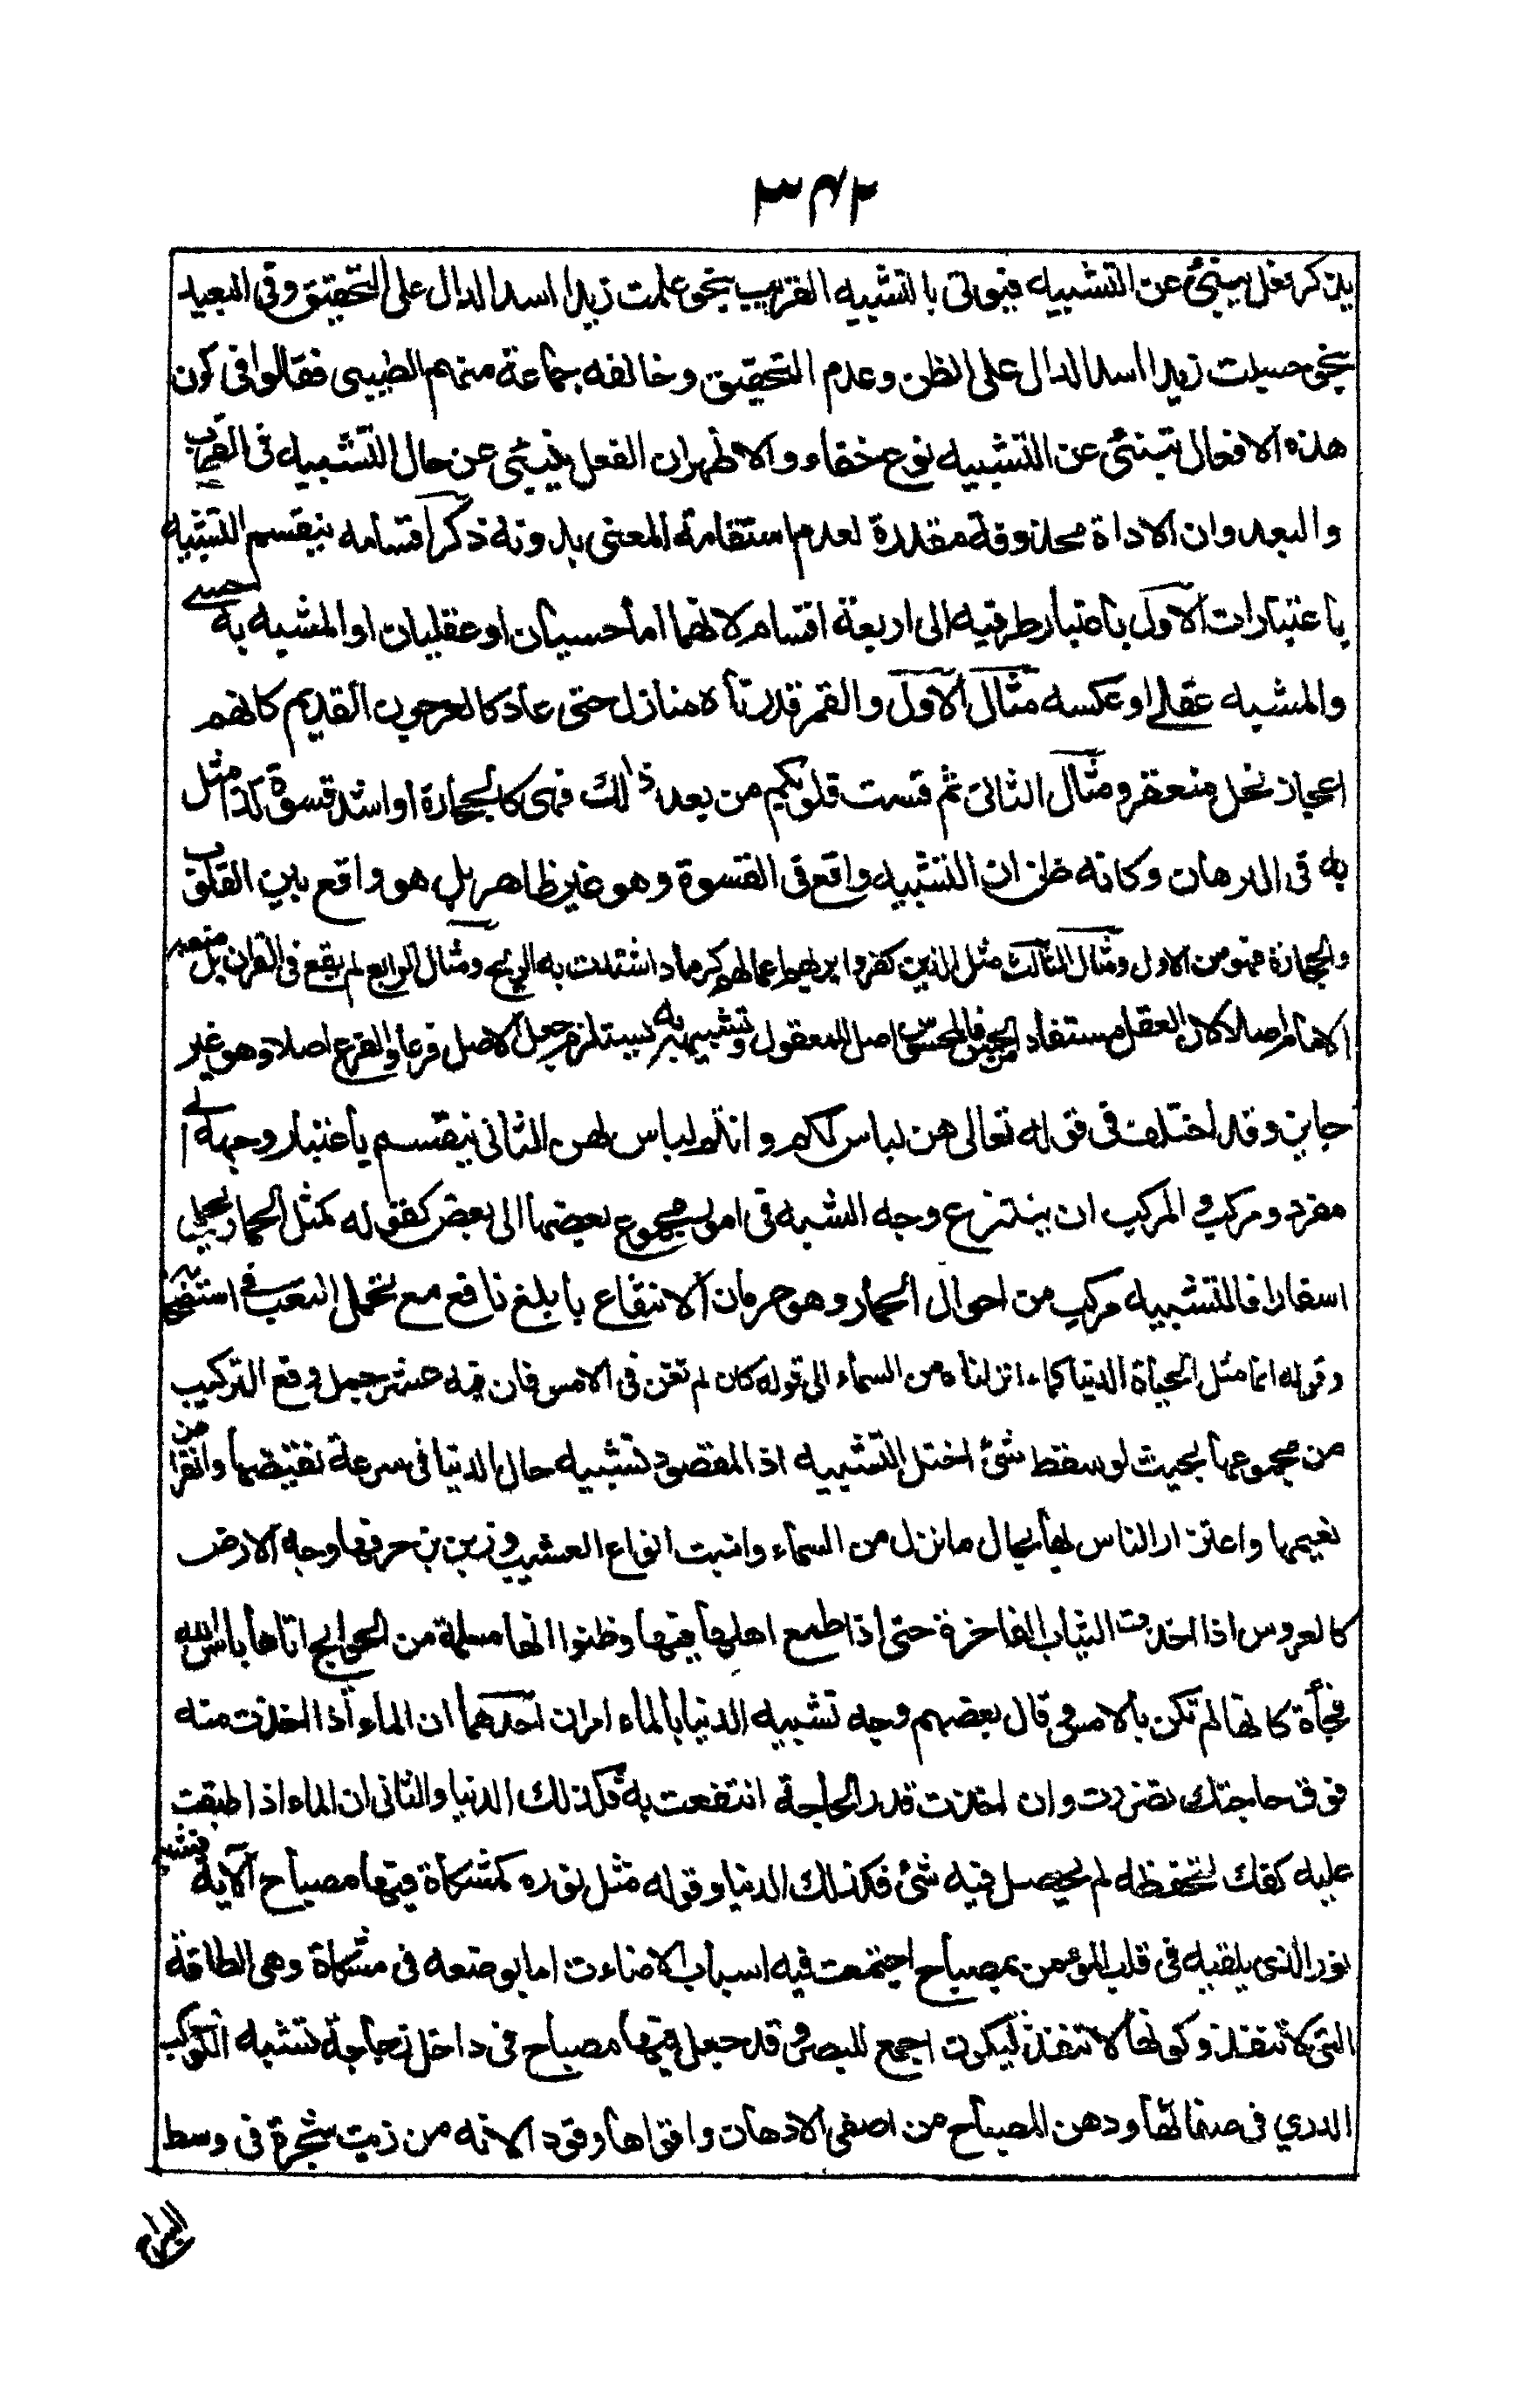 ٣٤٢
يذكر فعل ينبئ عن التشبيه فيوتى بالتشبيه القريب بنحو علمت زيدا اسدا الدال على التحقيق وفى البعيد
بنحو حسبت زيدا اسدا الدال على الظن وعدم التحقيق وخالفه جماعة منهم الطيبى فقالوا فى كون
هذه الافعال تنبئ عن التشبيه نوع خفاء والاظهر ان الفعل ينبئ عن حال التشبيه فى القرب
والبعد وان الاداة محذوفة مقدرة لعدم استقامة المعنى بدونه ذكر اقسامه ينقسم التشبيه
باعتبارات الاول باعتبار طرفيه الى اربعة اقسام لانهما اما حسيان او عقليان او المشبه به حسى
والمشبه عقلى او عكسه مثال الاول والقمر قدرناه منازل حتى عاد كالعرجون القديم كانهم
اعجاز نخل منعقر ومثال الثانى ثم قست قلوبكم من بعد ذلك فهى كالحجارة او اشد قسوة كذا مثل
به فى البرهان وكانه ظن ان التشبيه واقع فى القسوة وهو غير ظاهر بل هو واقع بين القلوب
والحجارة فهو من الاول ومثال الثالث مثل الذين كفروا بربهم اعمالهم كرماد اشتدت به الريح ومثال الرابع لم يقع فى القران بل منعه
الامام اصلا لان العقل مستفاد من الحس فالمحسوس اصل للمعقول وتشبيهه به يستلزم جعل الاصل فرعا والفرع اصلا وهو غير
جايز وقد اختلف فى قوله تعالى هن لباس لكم وانتم لباس لهن الثانى ينقسم باعتبار وجهه الى
مفرد ومركب والمركب ان ينتزع وجه الشبه فى امور مجموع بعضها الى بعض كقوله كمثل الحمار يحمل
اسفارا فالتشبيه مركب من احوال الحمار وهو حرمان الانتفاع بابلغ نافع مع تحمل التعب فى استصحابه
وقوله انما مثل الحيأة الدنيا كماء انزلناه من السماء الى قوله كان لم تغن فى الامس فان فيه عشر جمل وقع التركيب
من مجموعها بحيث لو سقط شئ اختل التشبيه اذ المقصود تشبيه حال الدنيا فى سرعة تقيضها وانقراض
نعيمها واغترار الناس بها بحال ما نزل من السماء وانبت انواع العشب وزين بزخرفها وجه الارض
كالعروس اذا اخذت الثياب الفاخرة حتى اذا طمع اهلها فيها وظنوا انها مسلمة من الحوايج اتاها باس الله
فجأة كانها لم تكن بالامس وقال بعضهم وجه تشبيه الدنيا بالماء امران احدهما ان الماء اذا اخذت منه
فوق حاجتك تضررت وان اخذت قدر الحاجة انتفعت به فكذلك الدنيا والثانى ان الماء اذا طبقت
عليه كفك لتحفظه لم يحصل فيه شئ فكذلك الدنيا وقوله مثل نوره كمشكاة فيها مصباح الآية فشبه
نوره الذى يلقيه فى قلب المؤمن بمصباح اجتمعت فيه اسباب الاضاءت اما بوضعه فى مشكاة وهى الطاقة
التى لا تنفذ وكونها لا تنفذ ليكون اجمع للبصر وقد جعل فيها مصباح فى داخل زجاجة تشبه الكوكب
الدري فى صفائها ودهن المصباح من اصفى الادهان واقواها وقود الانه من زيت شجرة فى وسط
السراج